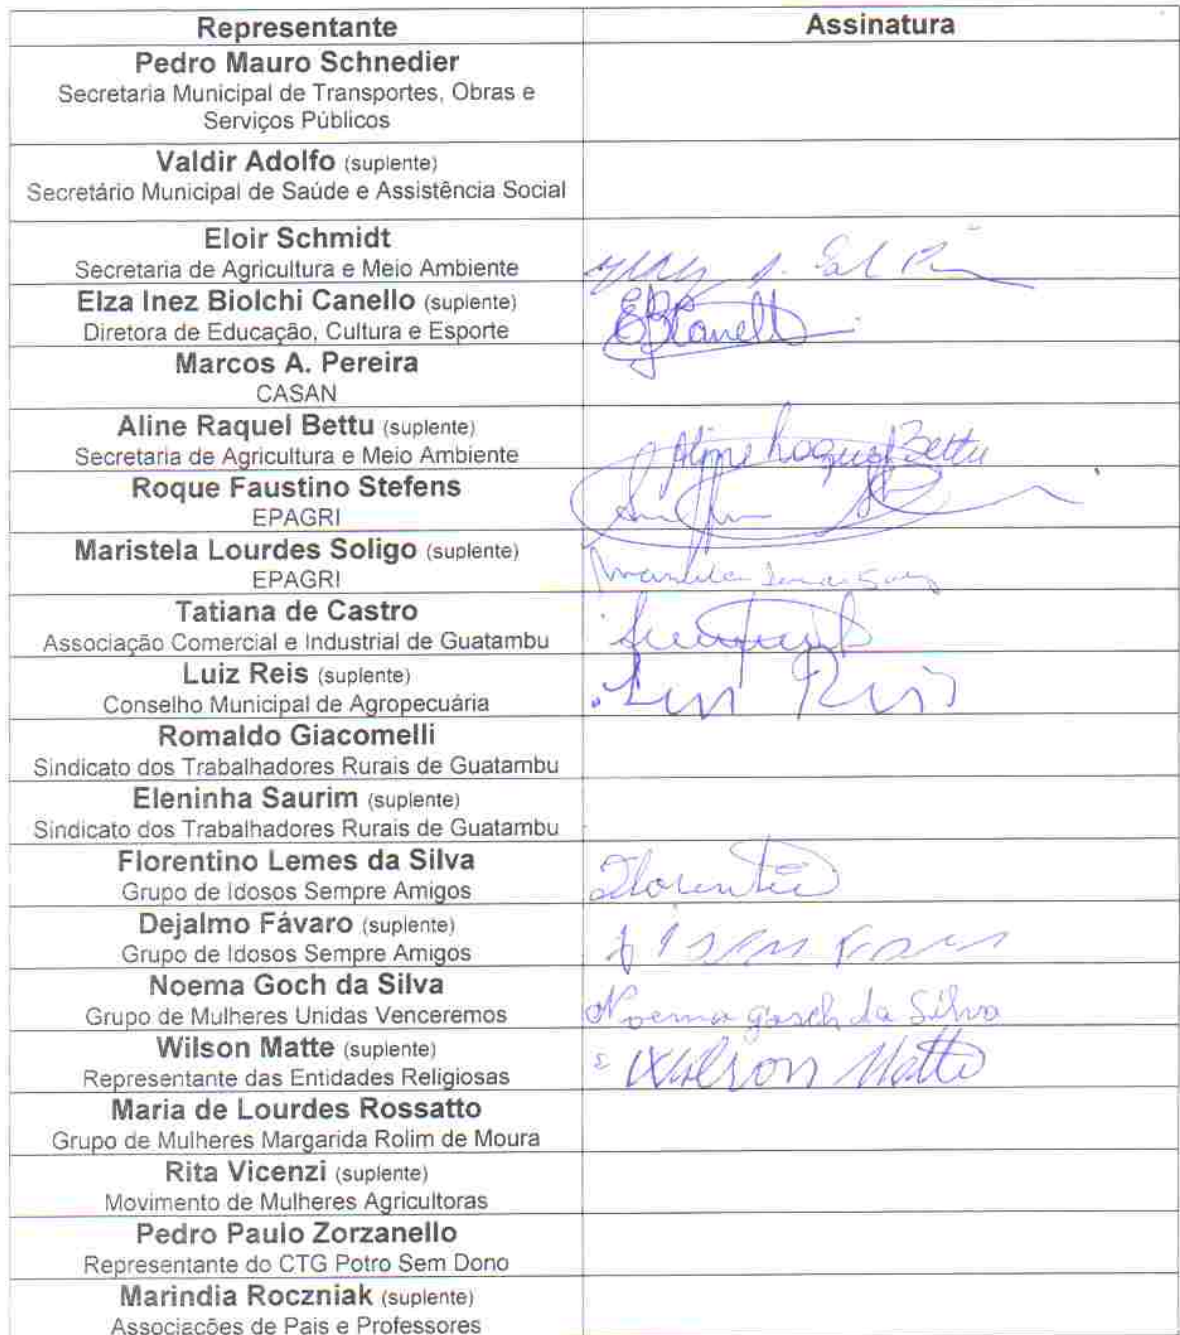 Representante Assinatura
Pedro Mauro Schnedier
Secretaria Municipal de Transportes, Obras e
Serviços Públicos
Valdir Adolfo (suplente)
Secretário Municipal de Saúde e Assistência Social
Eloir Schmidt
Secretaria de Agricultura e Meio Ambiente
Elza Inez Biolchi Canello (suplente)
Diretora de Educação, Cultura e Esporte
EBCanello
Marcos A. Pereira
CASAN
Aline Raquel Bettu (suplente)
Secretaria de Agricultura e Meio Ambiente
Aline Raquel Bettu
Roque Faustino Stefens
EPAGRI
Maristela Lourdes Soligo (suplente)
EPAGRI
Tatiana de Castro
Associação Comercial e Industrial de Guatambu
Luiz Reis (suplente)
Conselho Municipal de Agropecuária
Luis Reis
Romaldo Giacomelli
Sindicato dos Trabalhadores Rurais de Guatambu
Eleninha Saurim (suplente)
Sindicato dos Trabalhadores Rurais de Guatambu
Florentino Lemes da Silva
Grupo de Idosos Sempre Amigos
Florentino
Dejalmo Fávaro (suplente)
Grupo de Idosos Sempre Amigos
Noema Goch da Silva
Grupo de Mulheres Unidas Venceremos
Noema gosch da Silva
Wilson Matte (suplente)
Representante das Entidades Religiosas
Wilson Matte
Maria de Lourdes Rossatto
Grupo de Mulheres Margarida Rolim de Moura
Rita Vicenzi (suplente)
Movimento de Mulheres Agricultoras
Pedro Paulo Zorzanello
Representante do CTG Potro Sem Dono
Marindia Roczniak (suplente)
Associações de Pais e Professores